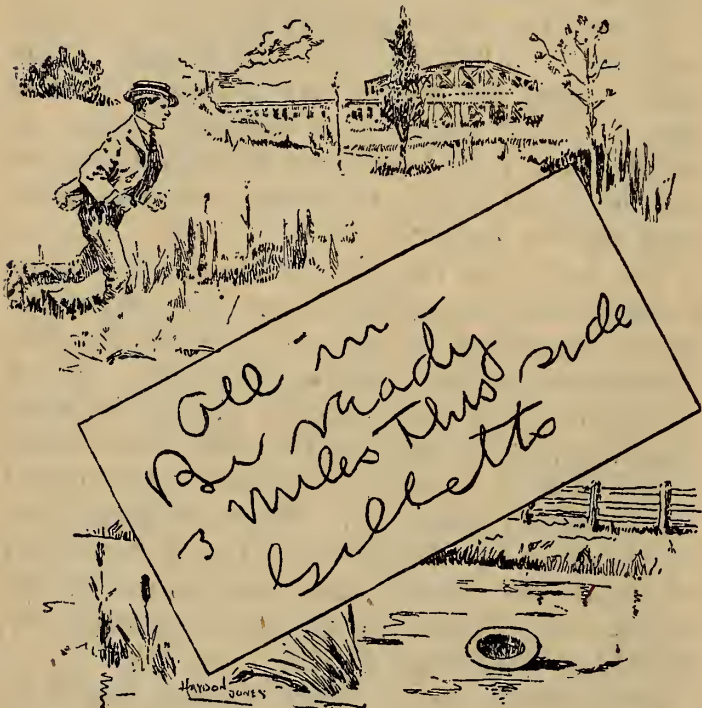 All in
Be ready
3 miles this side
Gillette
HAYDON
JONES